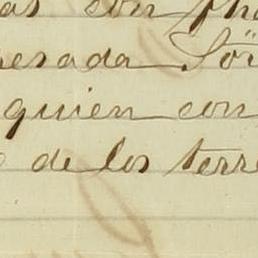 con
esada Sõi
quien con
de los terre